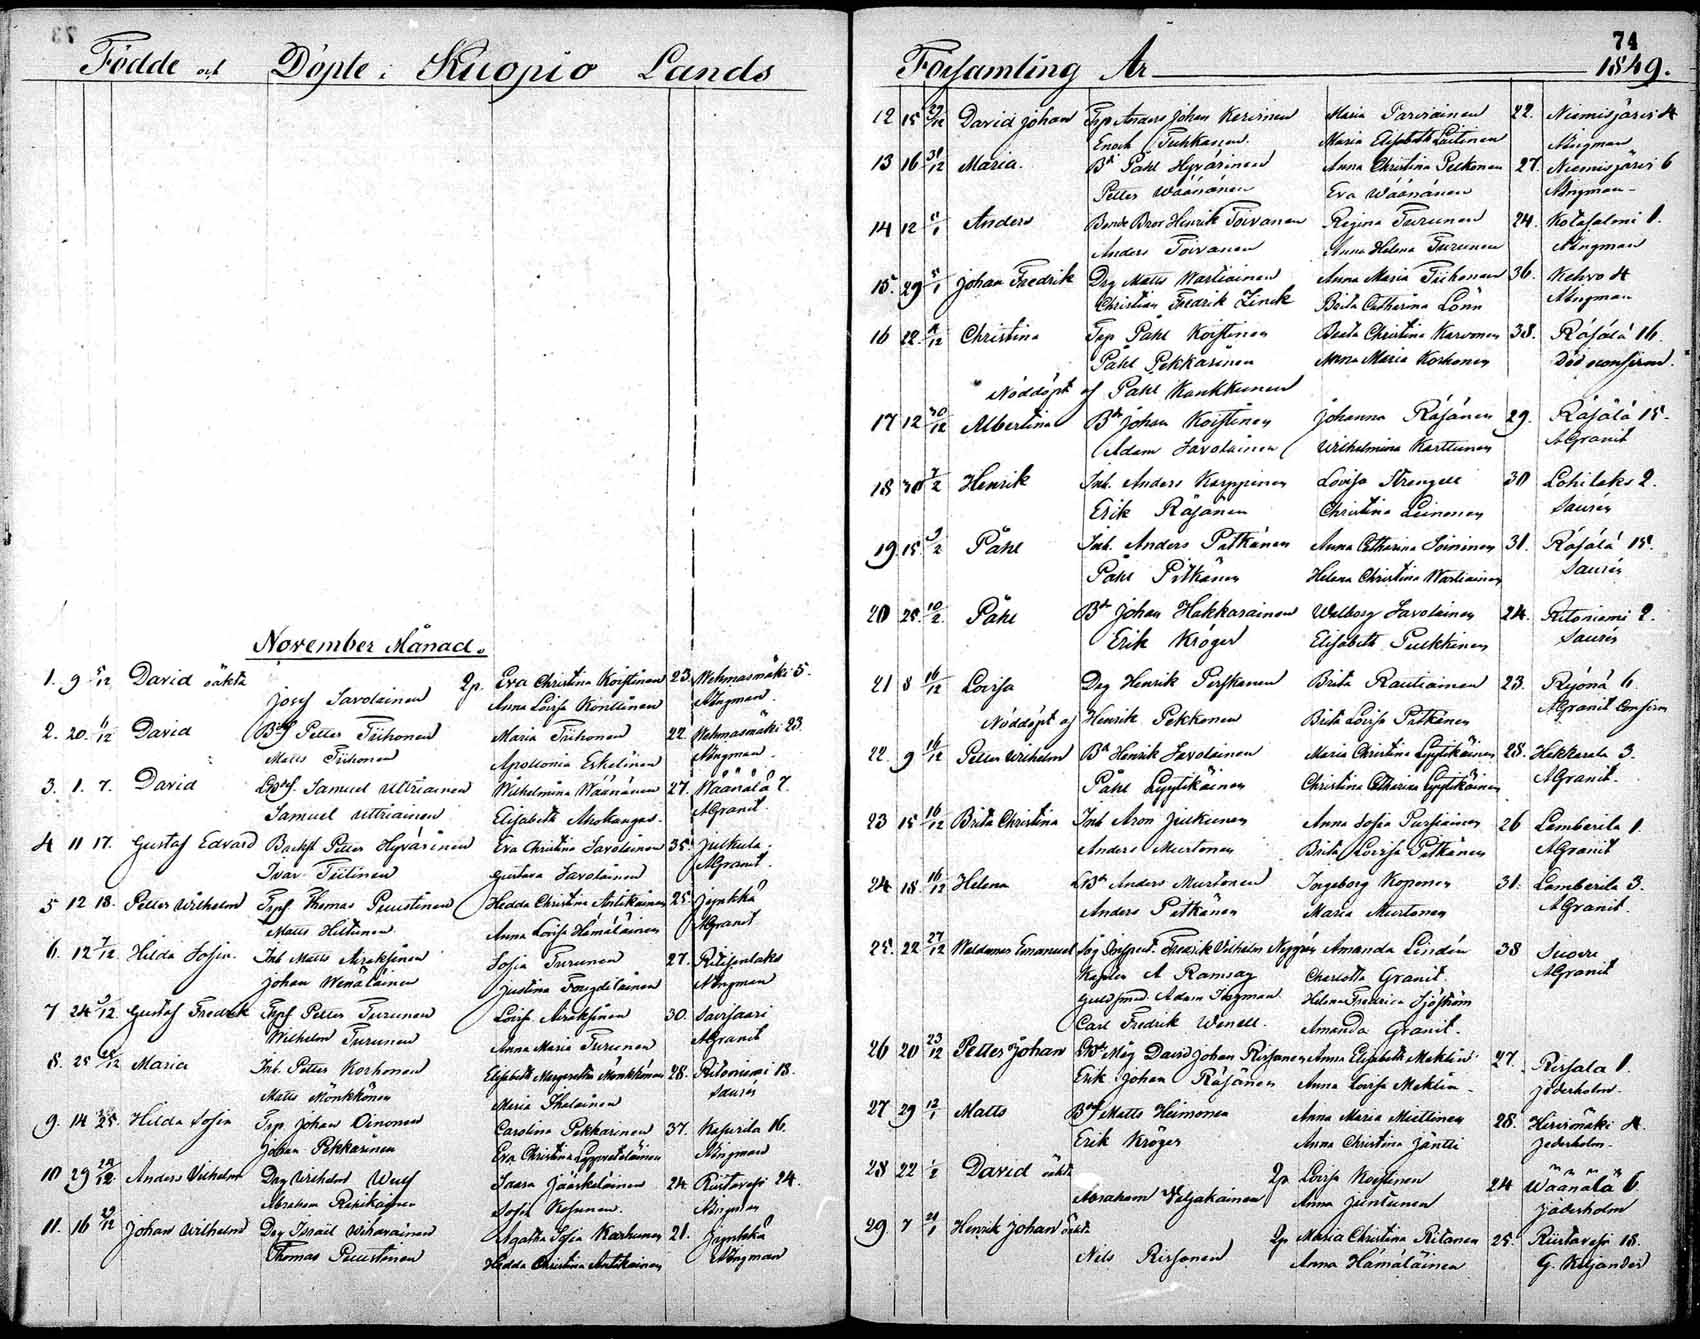 Födde och Döpte i Kuopio Lands
November Månad.
1. 9 5/12 David oäkta 2p. Eva Christina Koistinen 23. Wehmasmäki 5.
Josef Savolainen Anna Lovisa Konttinen AIngman.
2. 20. 11/12 David Bdf Petter Tiihonen Maria Tiihonen 22. Wehmasmäki 23.
Matts Tiihonen Apollonia Eskelinen AIngman.
3. 1. 7. David Samuel Uttriainen Wilhelmina Wäänänen 27. Wäänälä 7.
Samuel Uttriainen Elisabeth Ahokangas. AGranit.
4 11 17. Gustaf Edvard Petter Hyvärinen Eva Christina Savolainen 35. Julkula.
Ivar Tiilinen Gustava Savolainen AGranit.
5 12 18. Petter Wilhelm Thomas Puustinen Hedda Christina Antikainen 25. Jynkkä
Matts Hiltunen Anna Lovisa Hämäläinen AGranit
6. 12 7/12 Hilda Sofia. Inh Matts Airaksinen Sofia Turunen 27. Ritisenlaks
Johan Wenäläinen Justina Fougdelainen AIngman
7 24 Gustaf Fredrik Petter Turunen Lovisa Airaksinen 30. Savisaari
Wilhelm Turunen Anna Maria Turunen AGranit
8. 25 Maria Inh. Petter Korhonen Elisabeth Margaretha Mönkkönen 28. Ritoniemi 18.
Matts Mönkkönen Maria Ihalainen Saurén
9. 14 25. Hilda Sofia Trp. Johan Oinonen Carolina Pekkarinen 37. Kasurila 16.
Johan Pekkarinen Eva Christina AIngman
10 29 Anders Vilhelm Drg Wilhelm Wulf Saara Jääskeläinen 24. Riistavesi 24.
Abraham Sofia Kosunen. AIngman
11. 16 Johan Wilhelm Drg Israel Wihavainen Agatha Sofia Karhunen 21. Jynkkä
Thomas Puustinen Hedda Christina Antikainen AIngman
74
Församling År 1849.
12 15 27/12 David Johan Trp Anders Johan Kervinen Maria Parviainen 22. Niemisjärvi 4
Enoch Tuhkanen. Maria Elisabeth Laitinen AIngman
13 16 31/12 Maria. Bd Påhl Hyvärinen Anna Christina Pulkonen 27. Niemisjärvi 6
Petter Wäänänen Eva Wäänänen AIngman
14 12 Anders Bonde Bror Henrik Toivanen Regina Turunen 24. Kotasalmi 1.
Anders Toivanen Anna Helena Turunen AIngman
15. 29 Johan Fredrik Drg Matts Wartiainen Anna Maria Tiihonen 36. Kehvo 4
Christian Fredrik Zinck Brita Catharina Lönn AIngman
16 22. Christina Trp Påhl Koistinen Beata Christina Karvonen 38. Räsälä 16.
Påhl Pekkarinen Anna Maria Korhonen Död oconfirm.
Nöddöpt af Påhl Kaukkunen
17 12 30/12 Albertina Bd Johan Koistinen Johanna Räsänen 29. Räsälä 15.
Adam Savolainen Wilhelmina Karttunen AGranit
18 30 7/2 Henrik Inh. Anders Karppinen Lovisa Strengell 30 Lohilaks 2.
Erik Räsänen Christina Leinonen Saurén
19 15 9/2 Påhl Inh. Anders Pitkänen Anna Catharina Soininen 31. Räsälä 15.
Påhl Pitkänen Helena Christina Wartiainen Saurén
20 25. 10/2. Påhl Bd Johan Hakkarainen Walborg Savolainen 24. Ritoniemi 2.
Erik Kröger Elisabeth Pulkkinen Saurén
21 8 16/12 Lovisa Drg Henrik Purskanen Brita Rautiainen 23. Ryönä 6.
Nöddöpt af Henrik Pekkonen Brita Lovisa Pitkänen AGranit Confirm
22. 9 16/12 Petter Wilhelm Bd Henrik Savolainen Maria Christina Lyytikäinen 28. Hakkarala 3.
Påhl Lyytikäinen Christina Catharina Lyytikäinen AGranit.
23 15 16/12 Brita Christina Inh Aron Julkunen Anna Sofia Pursiainen 26 Lamberila 1.
Anders Murtonen Brita Lovisa Pitkänen AGranit
24 18. 16/12 Helena Bd Anders Murtonen Ingeborg Koponen 31. Lamberila 3.
Anders Pitkänen Maria Murtonen AGranit.
25. 22 27/12 Waldemar Emanuel Fredrik Vilhelm Nygrén Amanda Lindén 38 Suovu
Kaplan A Ramsay Charlotta Granit. AGranit
Guldsmed. Adam Ingman Helena Fredrica Sjöström
Carl Fredrik Wenell. Amanda Granit.
26 20 23/12 Petter Johan Måg David Johan Rissanen Anna Elisabeth Meklin 27. Rissala 1.
Erik Johan Räsänen Anna Lovisa Meklin Jäderholm.
27 29 12/1 Matts Bdf Matts Heimonen Anna Maria Miettinen 28. Hirvimäki 4.
Erik Kröger Anna Christina Jäntti Jäderholm
28 22 David oäkta 2p Lovisa Koistinen 24 Wäänälä 6
Abraham Weljakainen Anna Juntunen Jäderholm
29 7 Henrik Johan oäkta 2p Maria Christina Ritanen 25. Riistavesi 18.
Nils Rissanen Anna Hämäläinen G. Kiljander